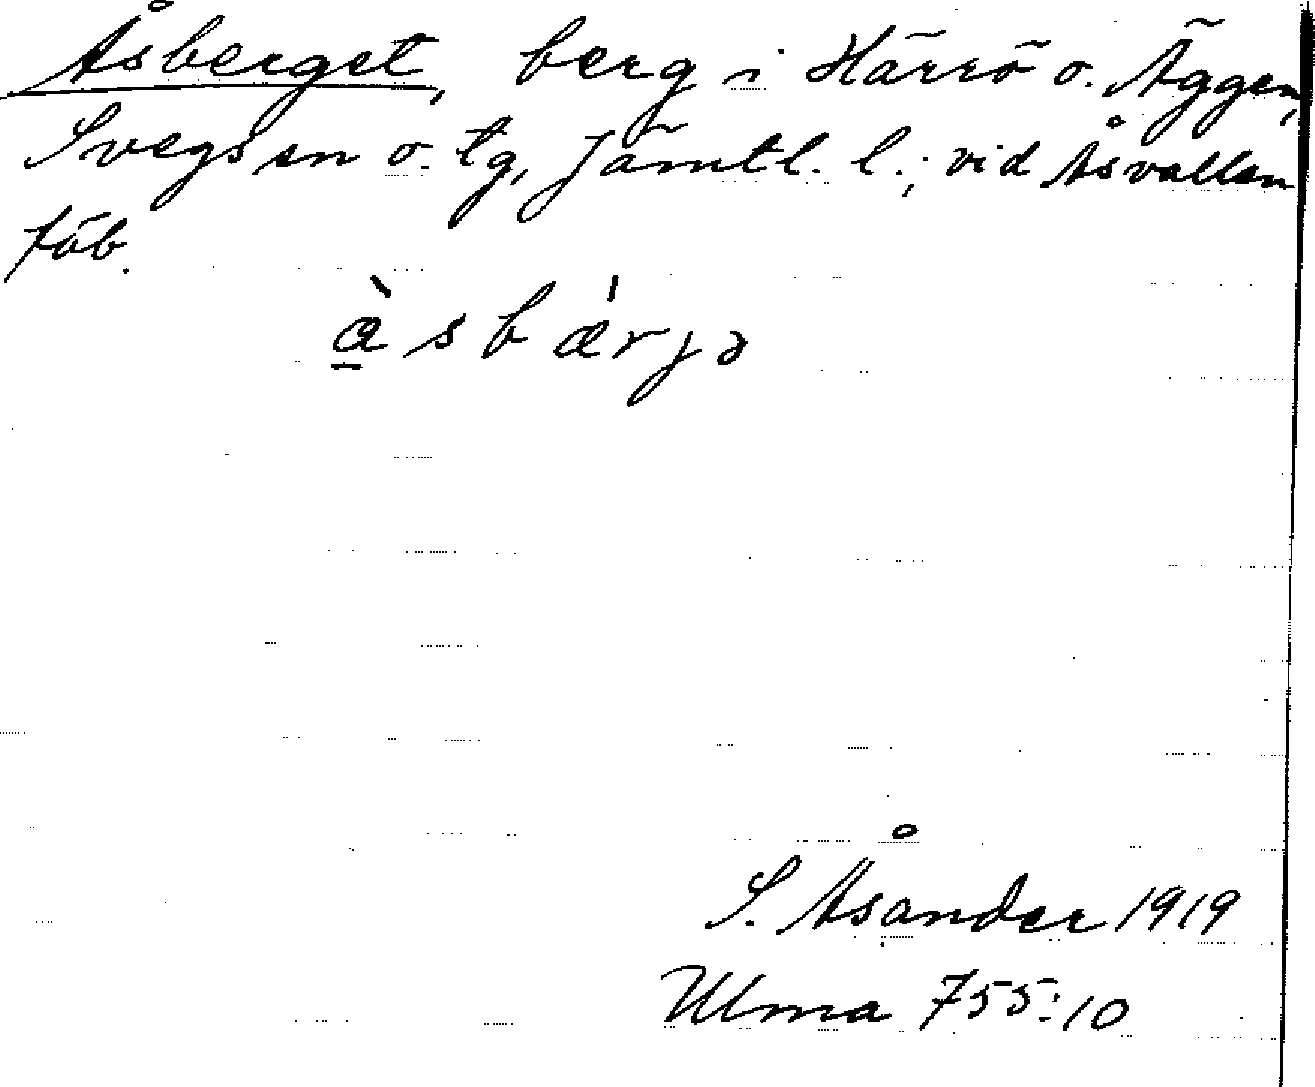 Åsberget, berg i Härrö o. Äggen,
Svegs sn o. tg, Jämtl. l.; vid Åsvallen
fäb.
S. Åsander 1919
Ulma 755:10